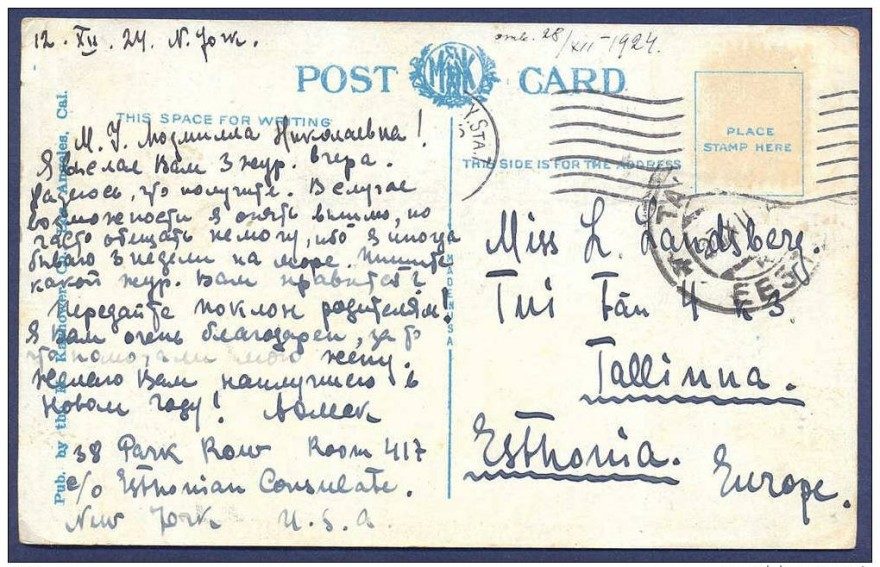 12. XII. 24. N. York.
отв. 28/XII-1924.
POST CARD
THIS SPACE FOR WRITING
THIS SIDE IS FOR THE ADDRESS
PLACE
STAMP HERE
М. У. Людмилла Николаевна!
Я послал Вам 3 жур. вчера.
что получите. В случае
возможности я опять вышлю, но
часто обещать немогу, ибо я иногда
бываю 3 недели на море. Пишите
какой жур. Вам нравится?
Передайте поклон родителям!
Я Вам очень благодарен, за то
что мою жену.
Желаю Вам наилучшего в
Новом году!
38 Park Row Room 417
c/o Esthonian Consulate.
New York U.S.A.
Miss L. Landsberg.
Tui Tän 4 k 3.
Tallinna.
Esthonia.
Europe.
MADE IN USA
Pub. by the M. Kashower Co. Los Angeles, Cal.
STA.
TA
EESTI